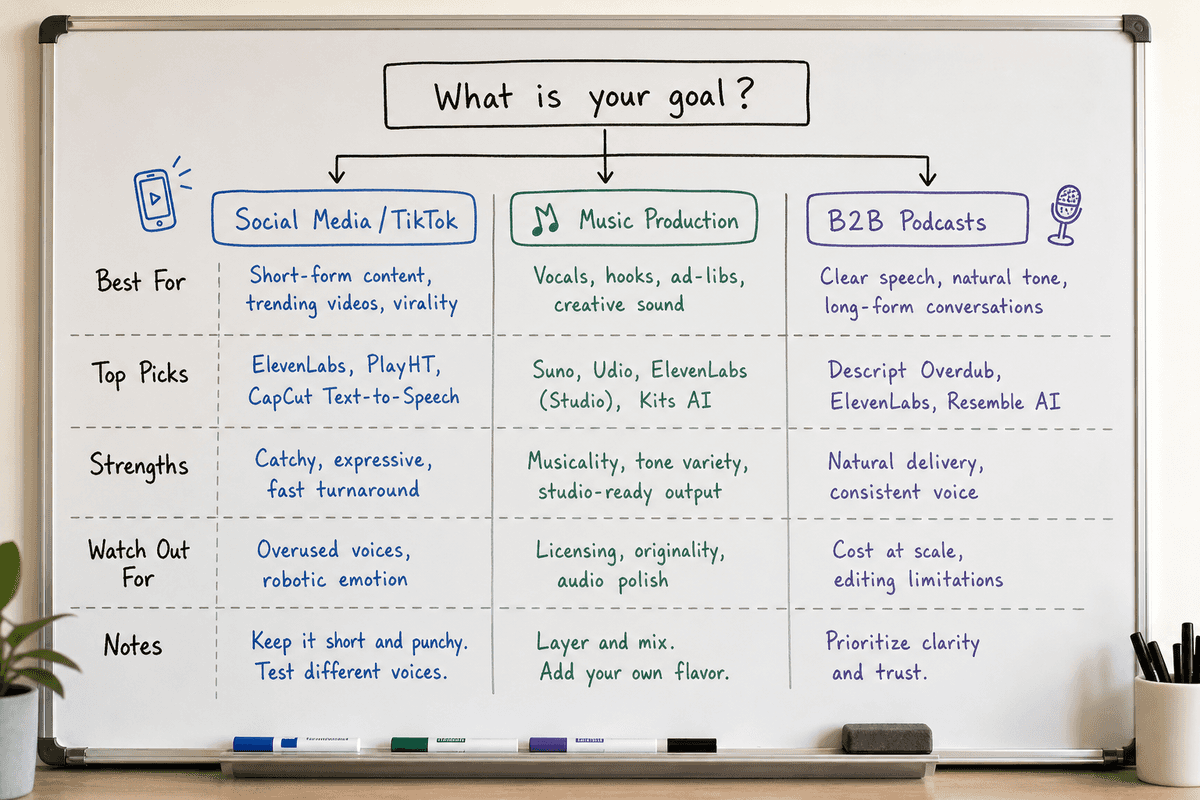 What is your goal?
Social Media / TikTok
Music Production
B2B Podcasts
Best For
Short-form content,
trending videos, virality
Vocals, hooks, ad-libs,
creative sound
Clear speech, natural tone,
long-form conversations
Top Picks
ElevenLabs, PlayHT,
CapCut Text-to-Speech
Suno, Udio, ElevenLabs
(Studio), Kits AI
Descript Overdub,
ElevenLabs, Resemble AI
Strengths
Catchy, expressive,
fast turnaround
Musicality, tone variety,
studio-ready output
Natural delivery,
consistent voice
Watch Out
For
Overused voices,
robotic emotion
Licensing, originality,
audio polish
Cost at scale,
editing limitations
Notes
Keep it short and punchy.
Test different voices.
Layer and mix.
Add your own flavor.
Prioritize clarity
and trust.